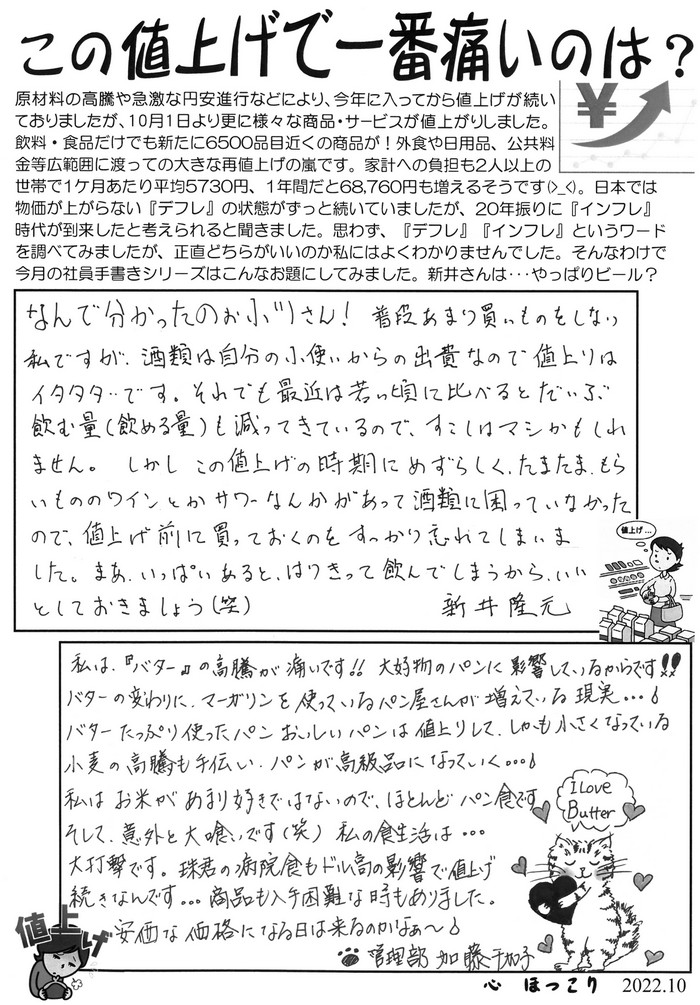 この値上げで一番痛いのは？
原材料の高騰や急激な円安進行などにより、今年に入ってから値上げが続い
ておりましたが、10月1日より更に様々な商品・サービスが値上がりしました。
飲料・食品だけでも新たに6500品目近くの商品が！外食や日用品、公共料
金等広範囲に渡っての大きな再値上げの嵐です。家計への負担も2人以上の
世帯で1ケ月あたり平均5730円、1年間だと68,760円も増えるそうです(>_<)。日本では
物価が上がらない『デフレ』の状態がずっと続いていましたが、20年振りに『インフレ』
時代が到来したと考えられると聞きました。思わず、『デフレ』『インフレ』というワード
を調べてみましたが、正直どちらがいいのか私にはよくわかりませんでした。そんなわけで
今月の社員手書きシリーズはこんなお題にしてみました。新井さんは・・・やっぱりビール？
¥
なんで分かったのぉ小川さん！ 普段あまり買いものをしない
私ですが、酒類は自分の小使いからの出費なので値上りは
イタタタ‥です。それでも最近は若い頃に比べるとだいぶ
飲む量(飲める量)も減ってきているので、すこしはマシかもしれ
ません。しかしこの値上げの時期にめずらしく、たまたま、もら
いもののワインとかサワーなんかがあって酒類に困っていなかった
ので、値上げ前に買っておくのをすっかり忘れてしまいま
した。まあ、いっぱいあると、はりきって飲んでしまうから、いい
としておきましょう(笑) 新井隆元
値上げ…
私は、『バター』の高騰が痛いです!! 大好物のパンに影響しているからです!!
バターの変わりに、マーガリンを使っているパン屋さんが増えている現実…
バターたっぷり使ったパンおいしいパンは値上りして、しかも小さくなっている
小麦の高騰も手伝い、パンが高級品になっていく…
私はお米があまり好きではないので、ほとんどパン食です
そして、意外と大喰いです(笑) 私の食生活は…
大打撃です。珠君の病院食もドル高の影響で値上げ
続きなんです… 商品も入手困難な時もありました。
安価な価格になる日は来るのかなぁ～
管理部 加藤千加子
I Love
Butter
値上げ
心 ほっこり 2022.10